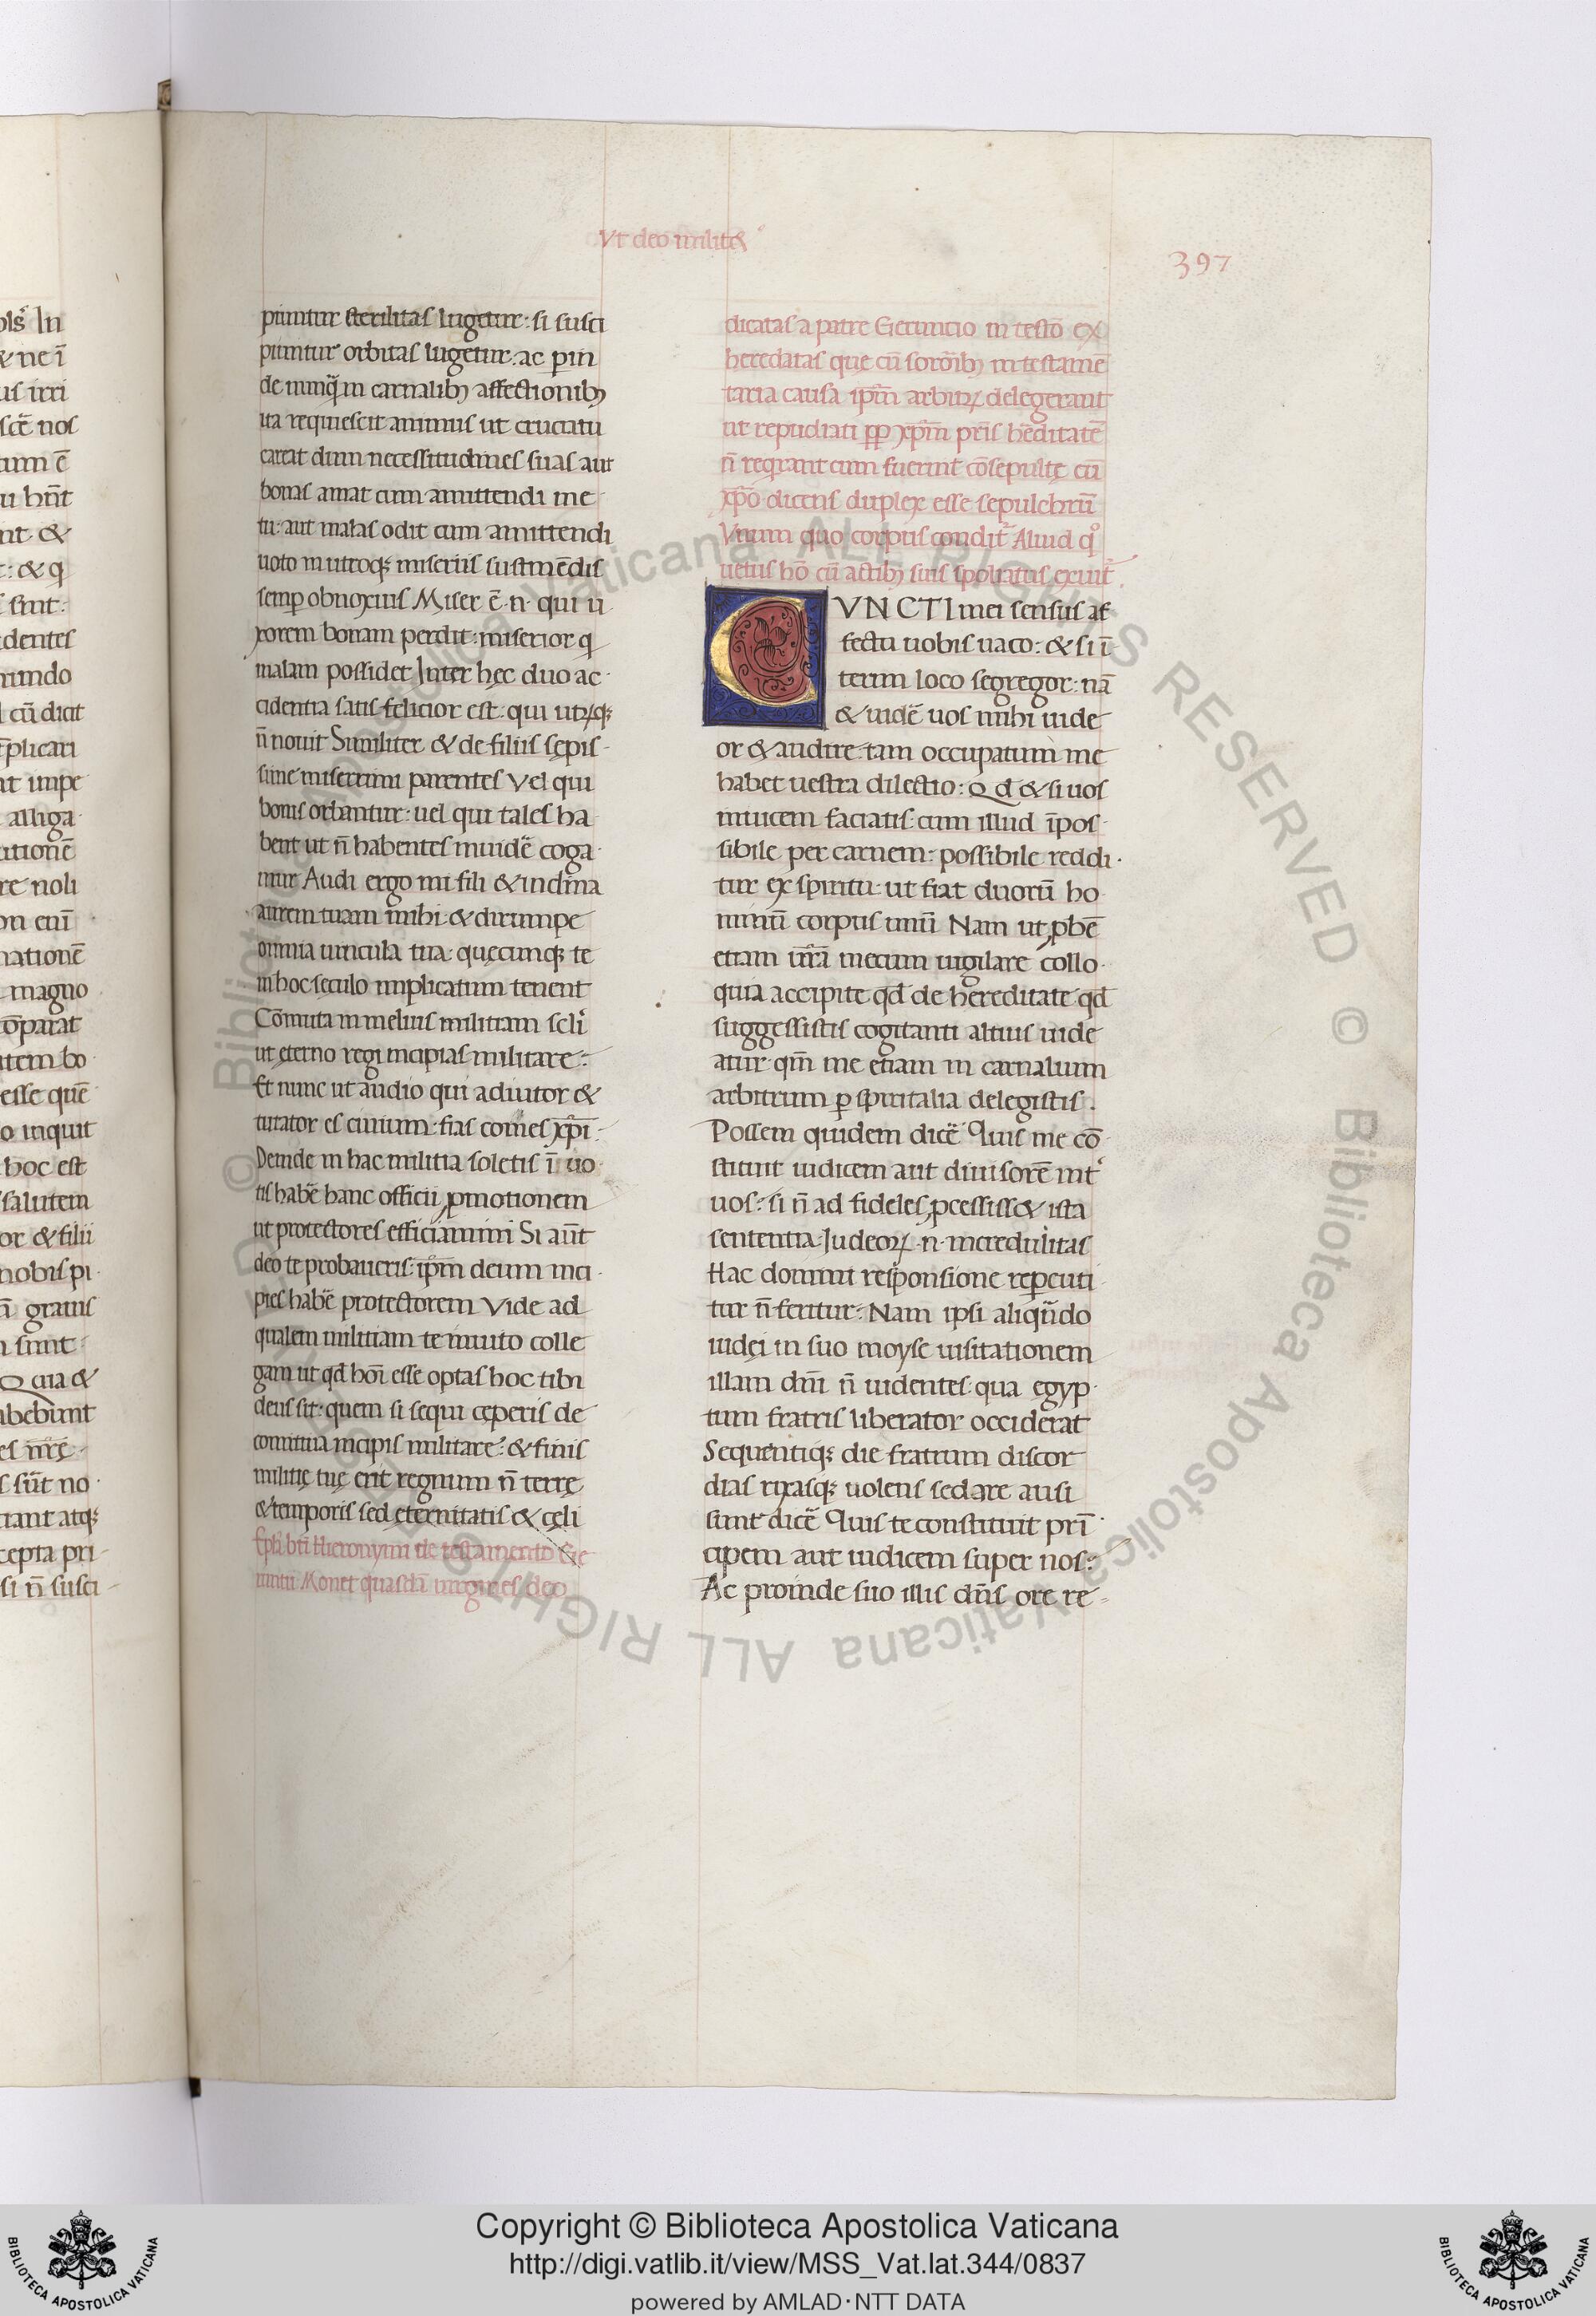 Vt deo militet
397
ols̃ In
& ne ī
us irri
scē nos
tum ē
u hñt
nt &
: & q
sint:
dentes
mundo
cū dicit
plicari
nt impe
alliga
ationē
re noli
on eni
nationē
magno
cōparat
utem bo
esse quē
o inquit
hoc est
salutem
or & filii
nobis pi
gratus
sunt:
Quia &
abebunt
es nr̄ę
s sūt no
rant atq;
cepta pri
si n̄ susci
piuntur sterilitas lugetur: si susci
piuntur orbitas lugetur: ac perin
de nunq̄ in carnalib; affectionib;
ita requiescit animus ut cruciatu
careat dum necessitudines suas aut
bonas amat cum amittendi me
tu: aut malas odit cum amittendi
uoto in utroq; miseriis sustinēdis
semp obnoxius Miser ē .n. qui u
xorem bonam perdit: miserior q
malam possidet Inter hęc duo ac
cidentia satis felicior est: qui utrūq;
n̄ nouit Similiter & de filiis sępis
sime miserrimi parentes Vel qui
bonis orbantur: uel qui tales ha
bent ut n̄ habentes inuidē coga
mur Audi ergo mi fili & inclina
aurem tuam mihi: & dirumpe
omnia uincula tua: quęcunq; te
in hoc sęculo implicatum tenent
Cōmuta in melius militiam scli
ut ęterno regi incipias militare:
Et nunc ut audio qui adiutor &
tutator es ciuium: fias comes xp̄i:
Deinde in hac militia soletis ī uo
tis habē hanc officii ꝓmotionem
ut protectores efficiamini Si aūt
deo te probaueris: ip̄m deum inci
pies habē protectorem Vide ad
qualem militiam te inuito colle
gam ut qd hoī esse optas hoc tibi
deus sit: quem si sequi cęperis de
comitiua incipis militare: & finis
militię tuę erit regnum n̄ terrę
& temporis sed ęternitatis & cęli
Epl̄ btī Hieronymi de testamento Ge
runtii Monet quasdā uirgines deo
dicatas a patre Geruntio in testō ex
heredatas que cū sorōib; in testamē
taria causa ip̄m arbitrꝝ delegerant
ut repudiati ꝑꝑ xp̄m pr̄is hēditatē
n̄ reqrant cum fuerint cōsepultę cū
xp̄o dicens duplex esse sepulchrū
Vnum quo corpus condit Aliud q̊
uetus hō cū actib; suis spoliatus exuit
CVNCTI mei sensus af
fectu uobis uaco: & si ī
terim loco segregor: nā
& uidē uos mihi uide
or & audire: tam occupatum me
habet uestra dilectio: Qd & si uos
inuicem faciatis: cum illud īpos
sibile per carnem: possibile reddi
tur ex spiritu: ut fiat duorū ho
minū corpus unū Nam ut ꝓbē
etiam ur̄a mecum uigilare collo
quia accipite qd de hereditate qd
suggessistis cogitanti altius uide
atur: qm̄ me etiam in carnalium
arbitrum ꝑ spiritalia delegistis.
Possem quidem dicē Quis me cō
stituit iudicem aut diuisorē int̄
uos: si n̄ ad fideles ꝓcessiss& ista
sententia: Judeoꝝ .n. incredulitas
Hac domini responsione repercuti
tur n̄ feritur: Nam ipsi aliqn̄do
iudęi in suo moyse uisitationem
illam dm̄i n̄ uidentes: qua egyp
tum fratris liberator occiderat
Sequentiq; die fratrum discor
dias rixasq; uolens sedare ausi
sunt dicē Quis te constituit pri
cipem aut iudicem super nos:
Ac proinde suo illis dn̄s ore re
© Biblioteca Apostolica Vaticana ALL RIGHTS RESERVED © Biblioteca Apostolica Vaticana ALL RIGHTS RESERVED
Copyright © Biblioteca Apostolica Vaticana
http://digi.vatlib.it/view/MSS_Vat.lat.344/0837
powered by AMLAD·NTT DATA
BIBLIOTECA APOSTOLICA VATICANA
BIBLIOTECA APOSTOLICA VATICANA